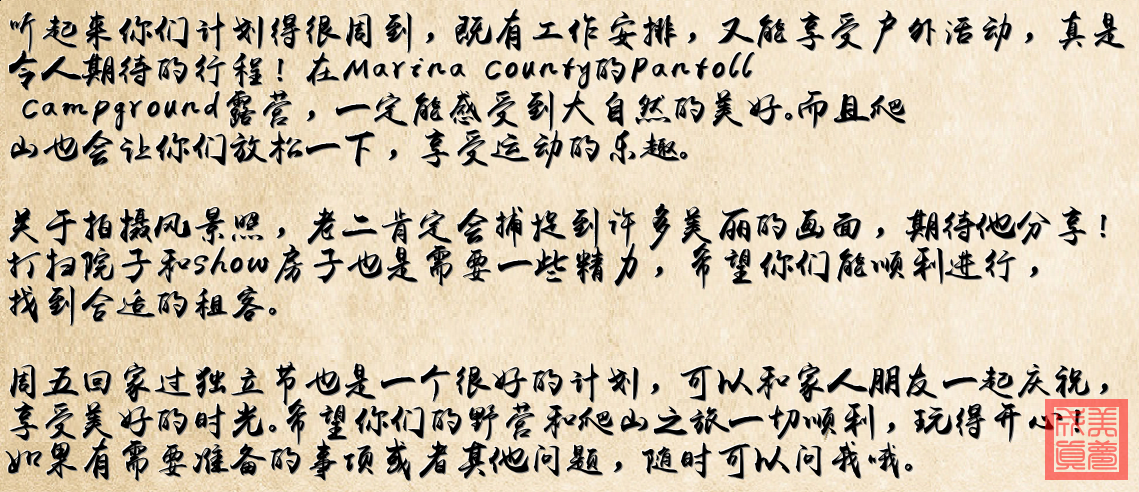 听起来你们计划得很周到，既有工作安排，又能享受户外活动，真是
令人期待的行程！在Marina county的Pantoll
campground露营，一定能感受到大自然的美好.而且爬
山也会让你们放松一下，享受运动的乐趣。
关于拍摄风景照，老二肯定会捕捉到许多美丽的画面，期待他分享！
打扫院子和show房子也是需要一些精力，希望你们能顺利进行，
找到合适的租客。
周五回家过独立节也是一个很好的计划，可以和家人朋友一起庆祝，
享受美好的时光.希望你们的野营和爬山之旅一切顺利，玩得开心！
如果有需要准备的事项或者其他问题，随时可以问我哦。